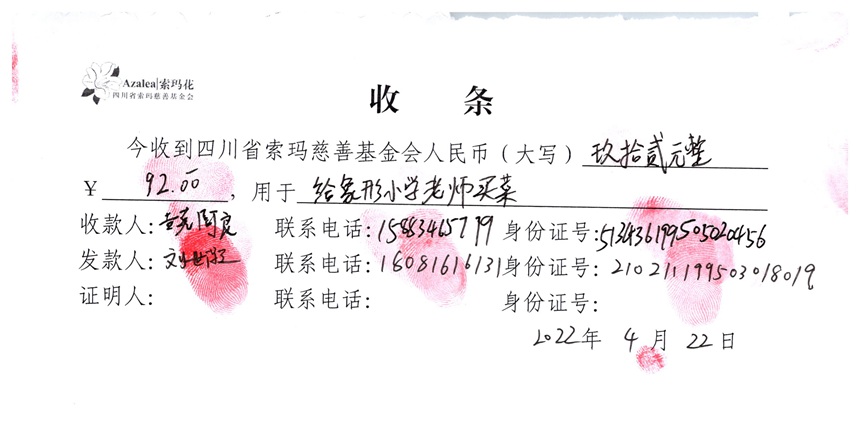 Azalea|索玛花
四川省索玛慈善基金会
收 条
今收到四川省索玛慈善基金会人民币（大写）玖拾贰元整
￥ 92.00 ，用于 给象形小学老师买菜
收款人: 联系电话: 15883465779 身份证号: 513436199505020456
发款人: 刘世 联系电话: 18081616131 身份证号: 210211199503018019
证明人: 联系电话: 身份证号:
2022年 4 月 22日